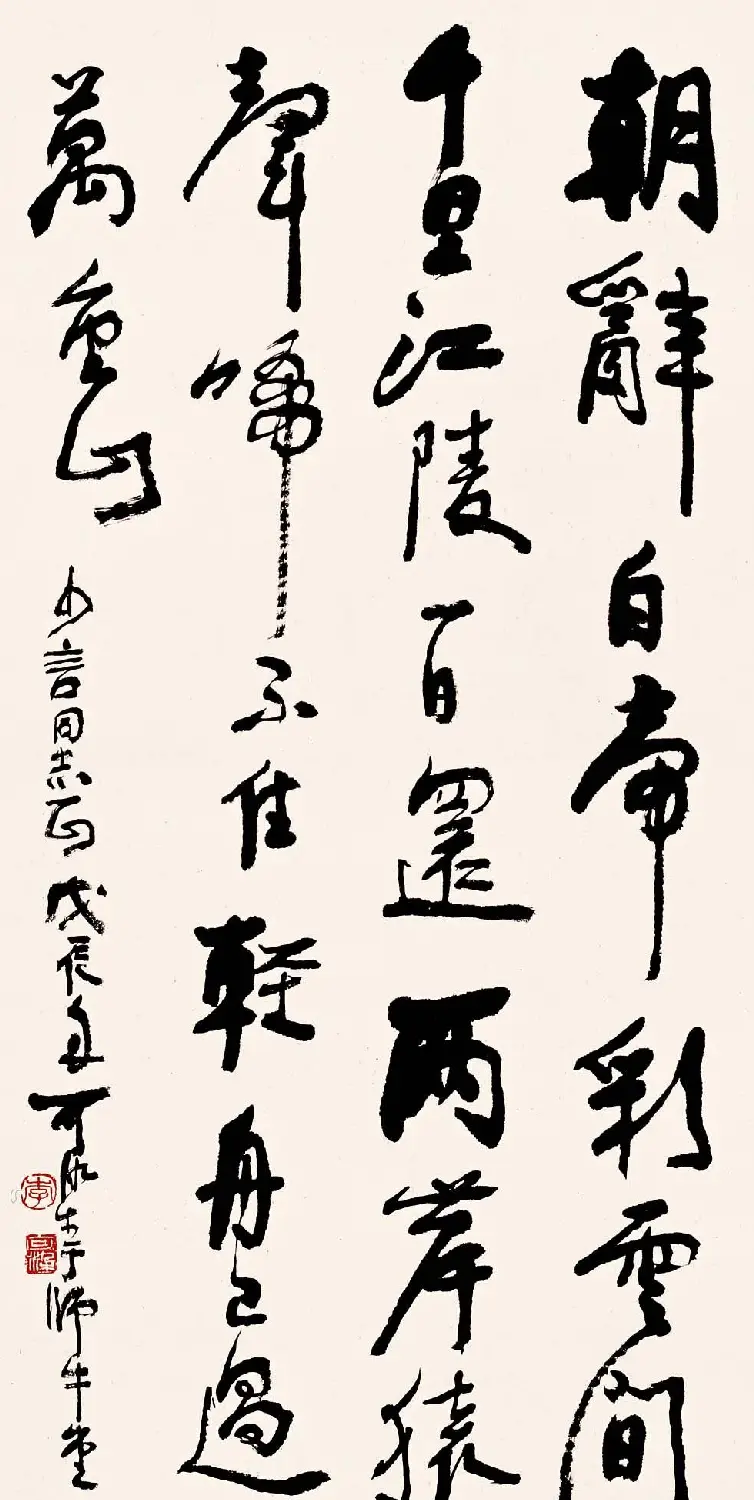 朝辭白帝彩雲間
千里江陵一日還兩岸猿
聲啼不住輕舟已過
萬重山
少言同志正戊辰年可染書于師牛堂
李